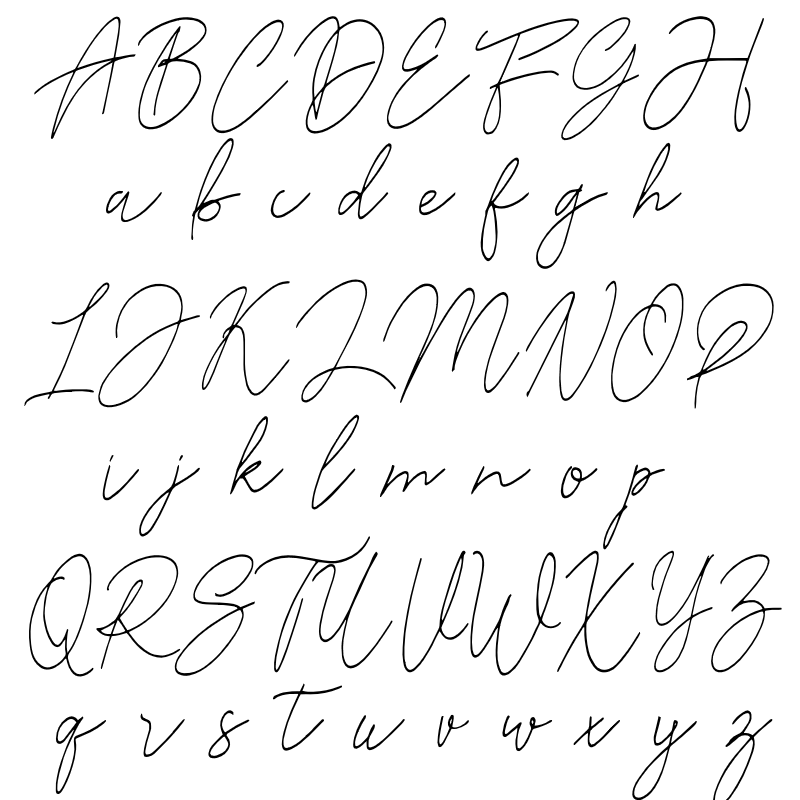 A B C D E F G H
a b c d e f g h
I J K L M N O P
i j k l m n o p
Q R S T U V W X Y Z
q r s t u v w x y z